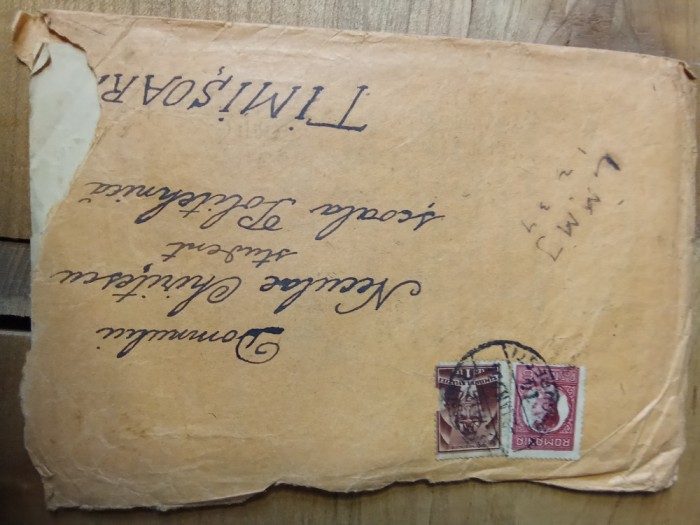 Domnului
Neculae Chirițescu
student
școala Politehnică
TIMIȘOAR
L M M J
2 3 4
ROMANIA